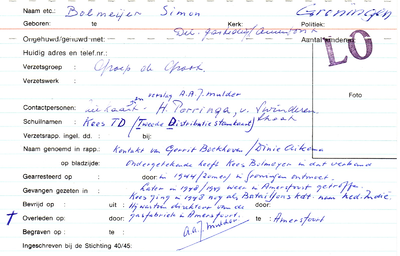 Naam etc.: Bolmeijer Simon Groningen
Geboren: te Kerk: Politiek
Ongehuwd/gehuwd met: Aantal kinderen
Huidig adres en telef.nr.:
Verzetsgroep : Groep de Groot.
Verzetswerk :
verslag A.A.J. Mulder Foto
Contactpersonen: zie kaart H. Porringa, v. Swinderen
Schuilnaam : Kees TD (Tweede Distributiestamkaart)
Verzetsrapp. ingel. dd. : bij:
Naam genoemd in rapp.: Kontakt van Gerrit Boekhoven/Dinie Aikema
op bladzijde: Ondergetekende heeft Kees Bolmeijer in dat verband
Gearresteerd op : door: in 1944 (zomer) in Groningen ontmoet.
Gevangen gezeten in : Later in 1948/1949 weer in Amersfoort getroffen.
Bevrijd op : uit : door: Kees ging in 1948 nog als Bataljons kdt. naar Ned. Indië.
Hij was toen direkteur van de
† Overleden op : door: gasfabriek in Amersfoort. te : Amersfoort
Begraven op : te : A.A.J. Mulder
Ingeschreven bij de Stichting 40/45:
LO